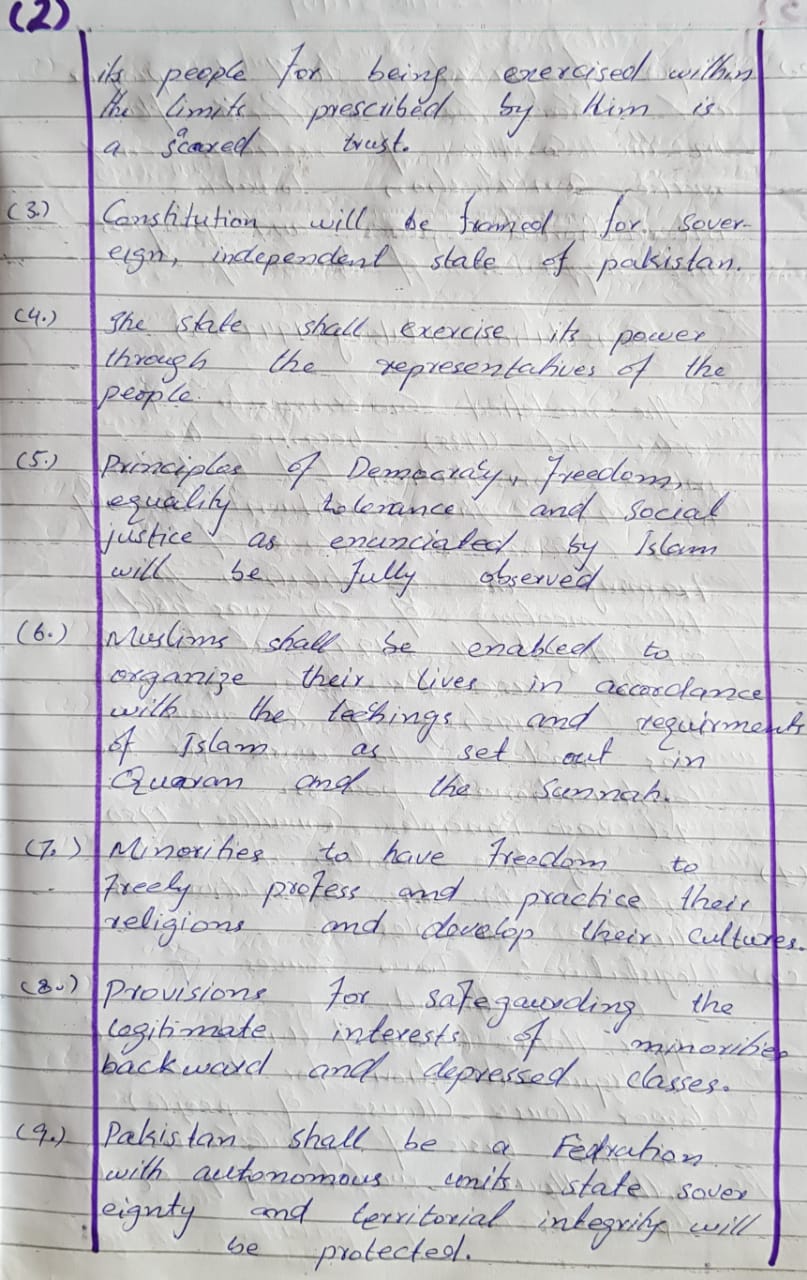 (2)
its people for being exercised within
the limits prescribed by Him is
a scared trust.
(3.) Constitution will be framed for sover-
eign, independent state of pakistan.
(4.) The state shall exercise its power
through the representatives of the
people.
(5.) Principles of Democracy, freedom,
equality tolerance and social
justice as enunciated by Islam
will be fully observed
(6.) Muslims shall be enabled to
organize their lives in accordance
with the techings and requirments
of Islam as set out in
Quaran and the Sunnah.
(7.) Minorities to have freedom to
freely profess and practice their
religions and develop their cultures.
(8.) Provisions for safegaurding the
legitimate interests of minorities
backward and depressed classes.
(9.) Pakistan shall be a Fedration
with autonomous units state sover
eignty and territorial integrity will
be protected.